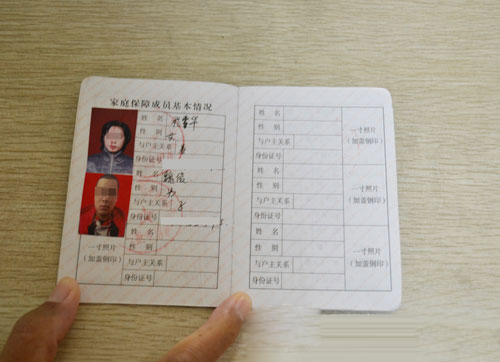 家庭保障成员基本情况
姓 名
性 别 女
与户主关系 妻
身份证号
姓 名
性 别
与户主关系 子
身份证号
姓 名
一寸照片
(加盖钢印)
性 别
与户主关系
身份证号
姓 名
一寸照片
(加盖钢印)
性 别
与户主关系
身份证号
姓 名
一寸照片
(加盖钢印)
性 别
与户主关系
身份证号
姓 名
一寸照片
(加盖钢印)
性 别
与户主关系
身份证号